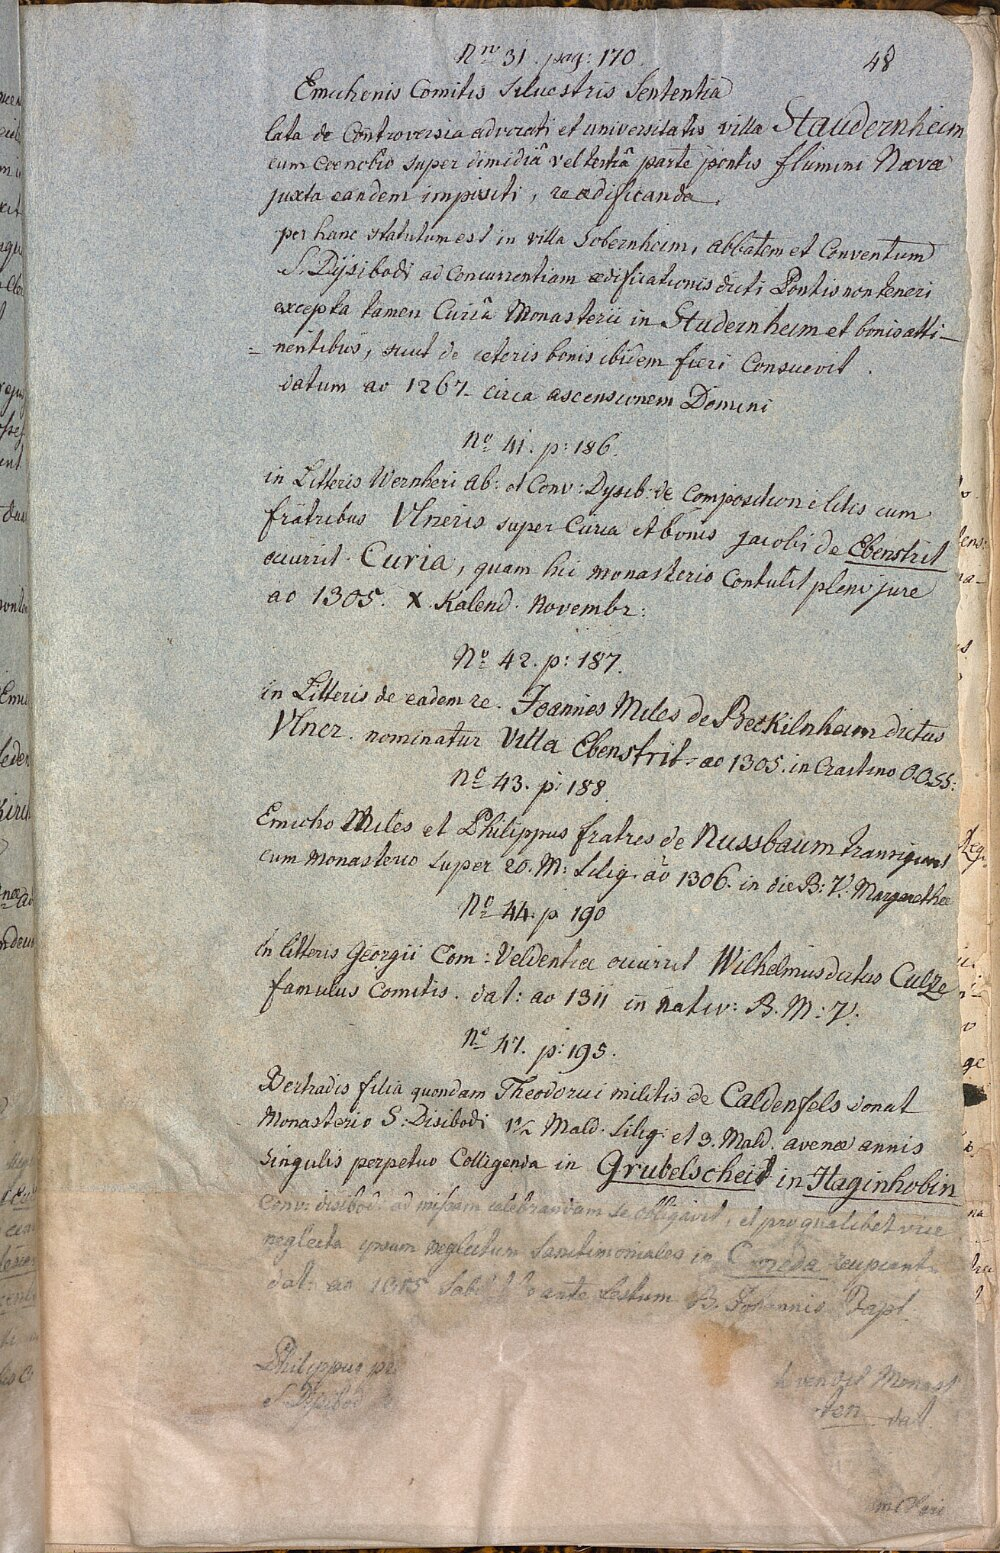 Nr. 31. pag: 170.
48
Emichonis Comitis Silvestris Sententia
lata de Controversia advocati et universitatis villa Staudernheim
cum Coenobio super dimidiâ vel tertiâ parte pontis flumini Navæ
juxta eandem impositi, reædificanda.
per hanc statutum est in villa Sobernheim, abbatem et Conventum
S. Dysibodi ad Concurrentiam ædificationis dicti Pontis non teneri
excepta tamen Curiâ Monasterii in Studernheim et bonis atti-
=nentibus, sicut de ceteris bonis ibidem fieri Consuevit.
datum ao 1267. circa ascensionem Domini
No. 41. p: 186.
in Litteris Wernheri Ab: et Conv: Dysib: de Compositione litis cum
fratribus Vlneris super Curia et bonis Jacobi de Ebenstrit
occurrit Curia, quam hic monasterio Contulit pleni jure
ao 1305. X. Kalend. Novembr:
No. 42. p: 187.
in Litteris de eadem re. Joannes Miles de Beckilnheim dictus
Vlner. nominatur Villa Ebenstrit. ao 1305. in Crastino O.O.SS.
No. 43. p: 188.
Emicho Miles et Philippus fratres de Nussbaum transigunt
cum monasterio super 20. M: Silig. ao 1306. in die B: V. Margarethæ
No. 44. p 190
In litteris Georgii Com: Veldentiæ occurrit Wilhelmus dictus Culze
famulus Comitis. dat: ao 1311 in nativ: B. M: V.
No. 47. p: 195.
Bertradis filia quondam Theodorici militis de Caldenfels donat
Monasterio S. Disibodi 1½ Mald. Silig: et 3. Mald. avenæ annis
Singulis perpetuo Colligenda in Grubelscheit in Haginhobin
Conv: disibod: ad missam celebrandam se obligavit, et pro qualibet vice
neglecta ipsum neglectum Sanctimoniales in recipiant
dat: ao ante festum B. Johannis Bapt.
Philippus
Monast
S. Dysibod
dat